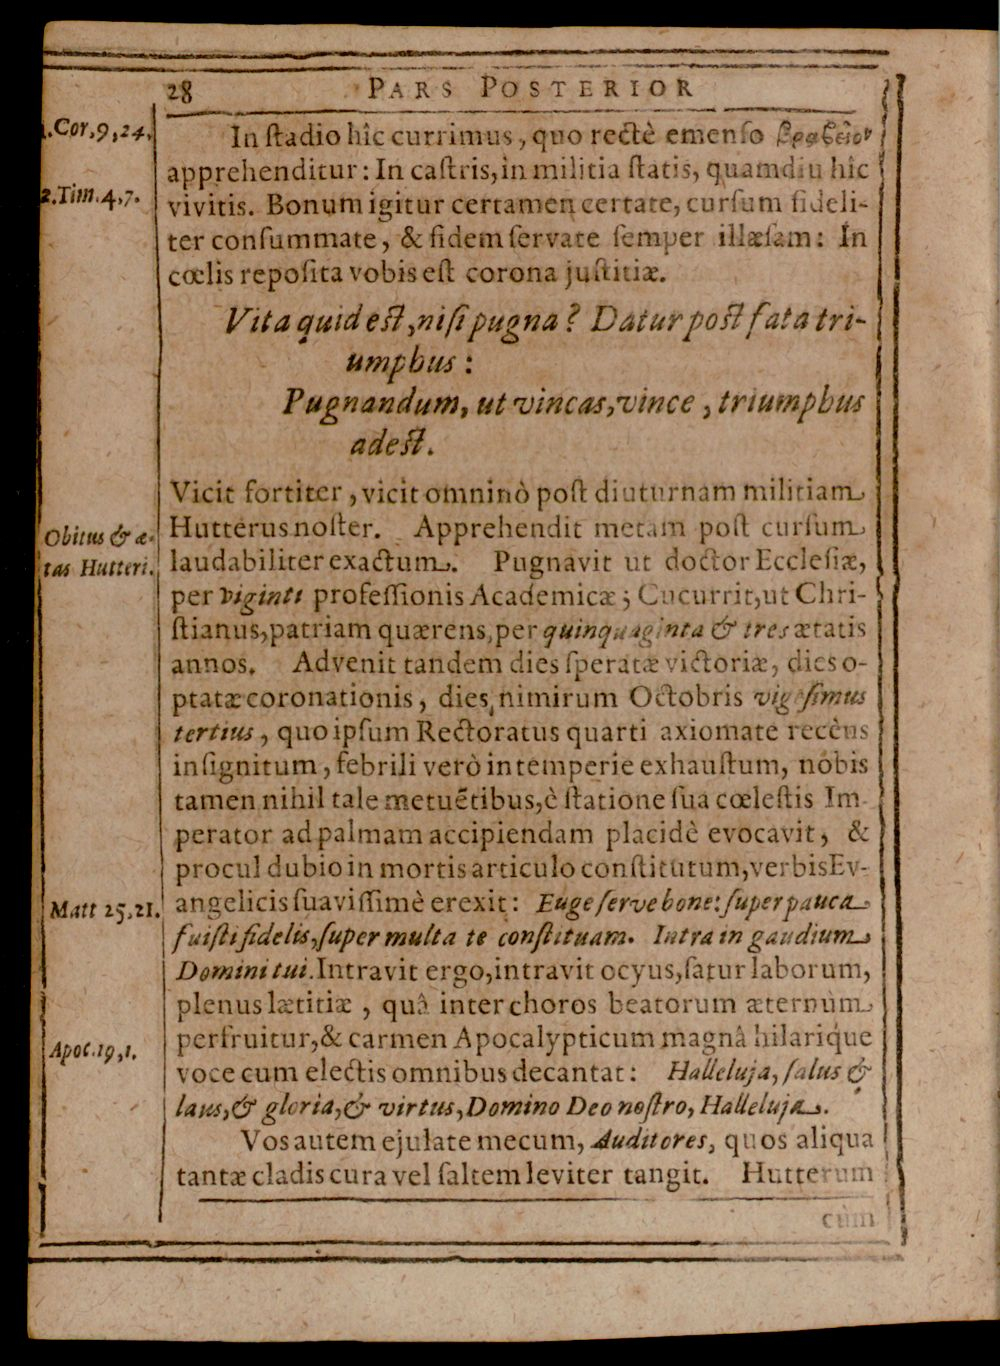 28 PARS POSTERIOR
1.Cor,9,24.
In ſtadio hîc currimus, quo rectè emenſo βραβεῖον
apprehenditur: In caſtris, in militia ſtatis, quamdiu hîc
2.Tim.4,7.
vivitis. Bonum igitur certamen certate, curſum fideli-
ter conſummate, & fidem ſervate ſemper illæſam: In
cœlis repoſita vobis eſt corona juſtitiæ.
Vita quid eſt, niſi pugna? Datur poſt fata tri-
umphus:
Pugnandum, ut vincas, vince, triumphus
adeſt.
Vicit fortiter, vicit omninò poſt diuturnam militiam
Obitus & æ-
tas Hutteri.
Hutterus noſter. Apprehendit metam poſt curſum
laudabiliter exactum. Pugnavit ut doctor Eccleſiæ,
per viginti profeſſionis Academicæ; Cucurrit, ut Chri-
ſtianus, patriam quærens, per quinquaginta & tres ætatis
annos. Advenit tandem dies ſperatæ victoriæ, dies o-
ptatæ coronationis, dies nimirum Octobris vigeſimus
tertius, quo ipſum Rectoratus quarti axiomate recèns
inſignitum, febrili verò intemperie exhauſtum, nobis
tamen nihil tale metuētibus, è ſtatione ſua cœleſtis Im-
perator ad palmam accipiendam placidè evocavit, &
procul dubio in mortis articulo conſtitutum, verbis Ev-
Matt 25.21.
angelicis ſuaviſſimè erexit: Euge ſerve bone: ſuper pauca
fuiſti fidelis, ſuper multa te conſtituam. Intra in gaudium
Domini tui. Intravit ergo, intravit ocyus, ſatur laborum,
plenus lætitiæ, quâ inter choros beatorum æternùm
Apoc.19,1.
perfruitur, & carmen Apocalypticum magnâ hilarique
voce cum electis omnibus decantat: Halleluja, ſalus &
laus, & gloria, & virtus, Domino Deo noſtro, Halleluja.
Vos autem ejulate mecum, Auditores, quos aliqua
tantæ cladis cura vel ſaltem leviter tangit. Hutterum
cùm